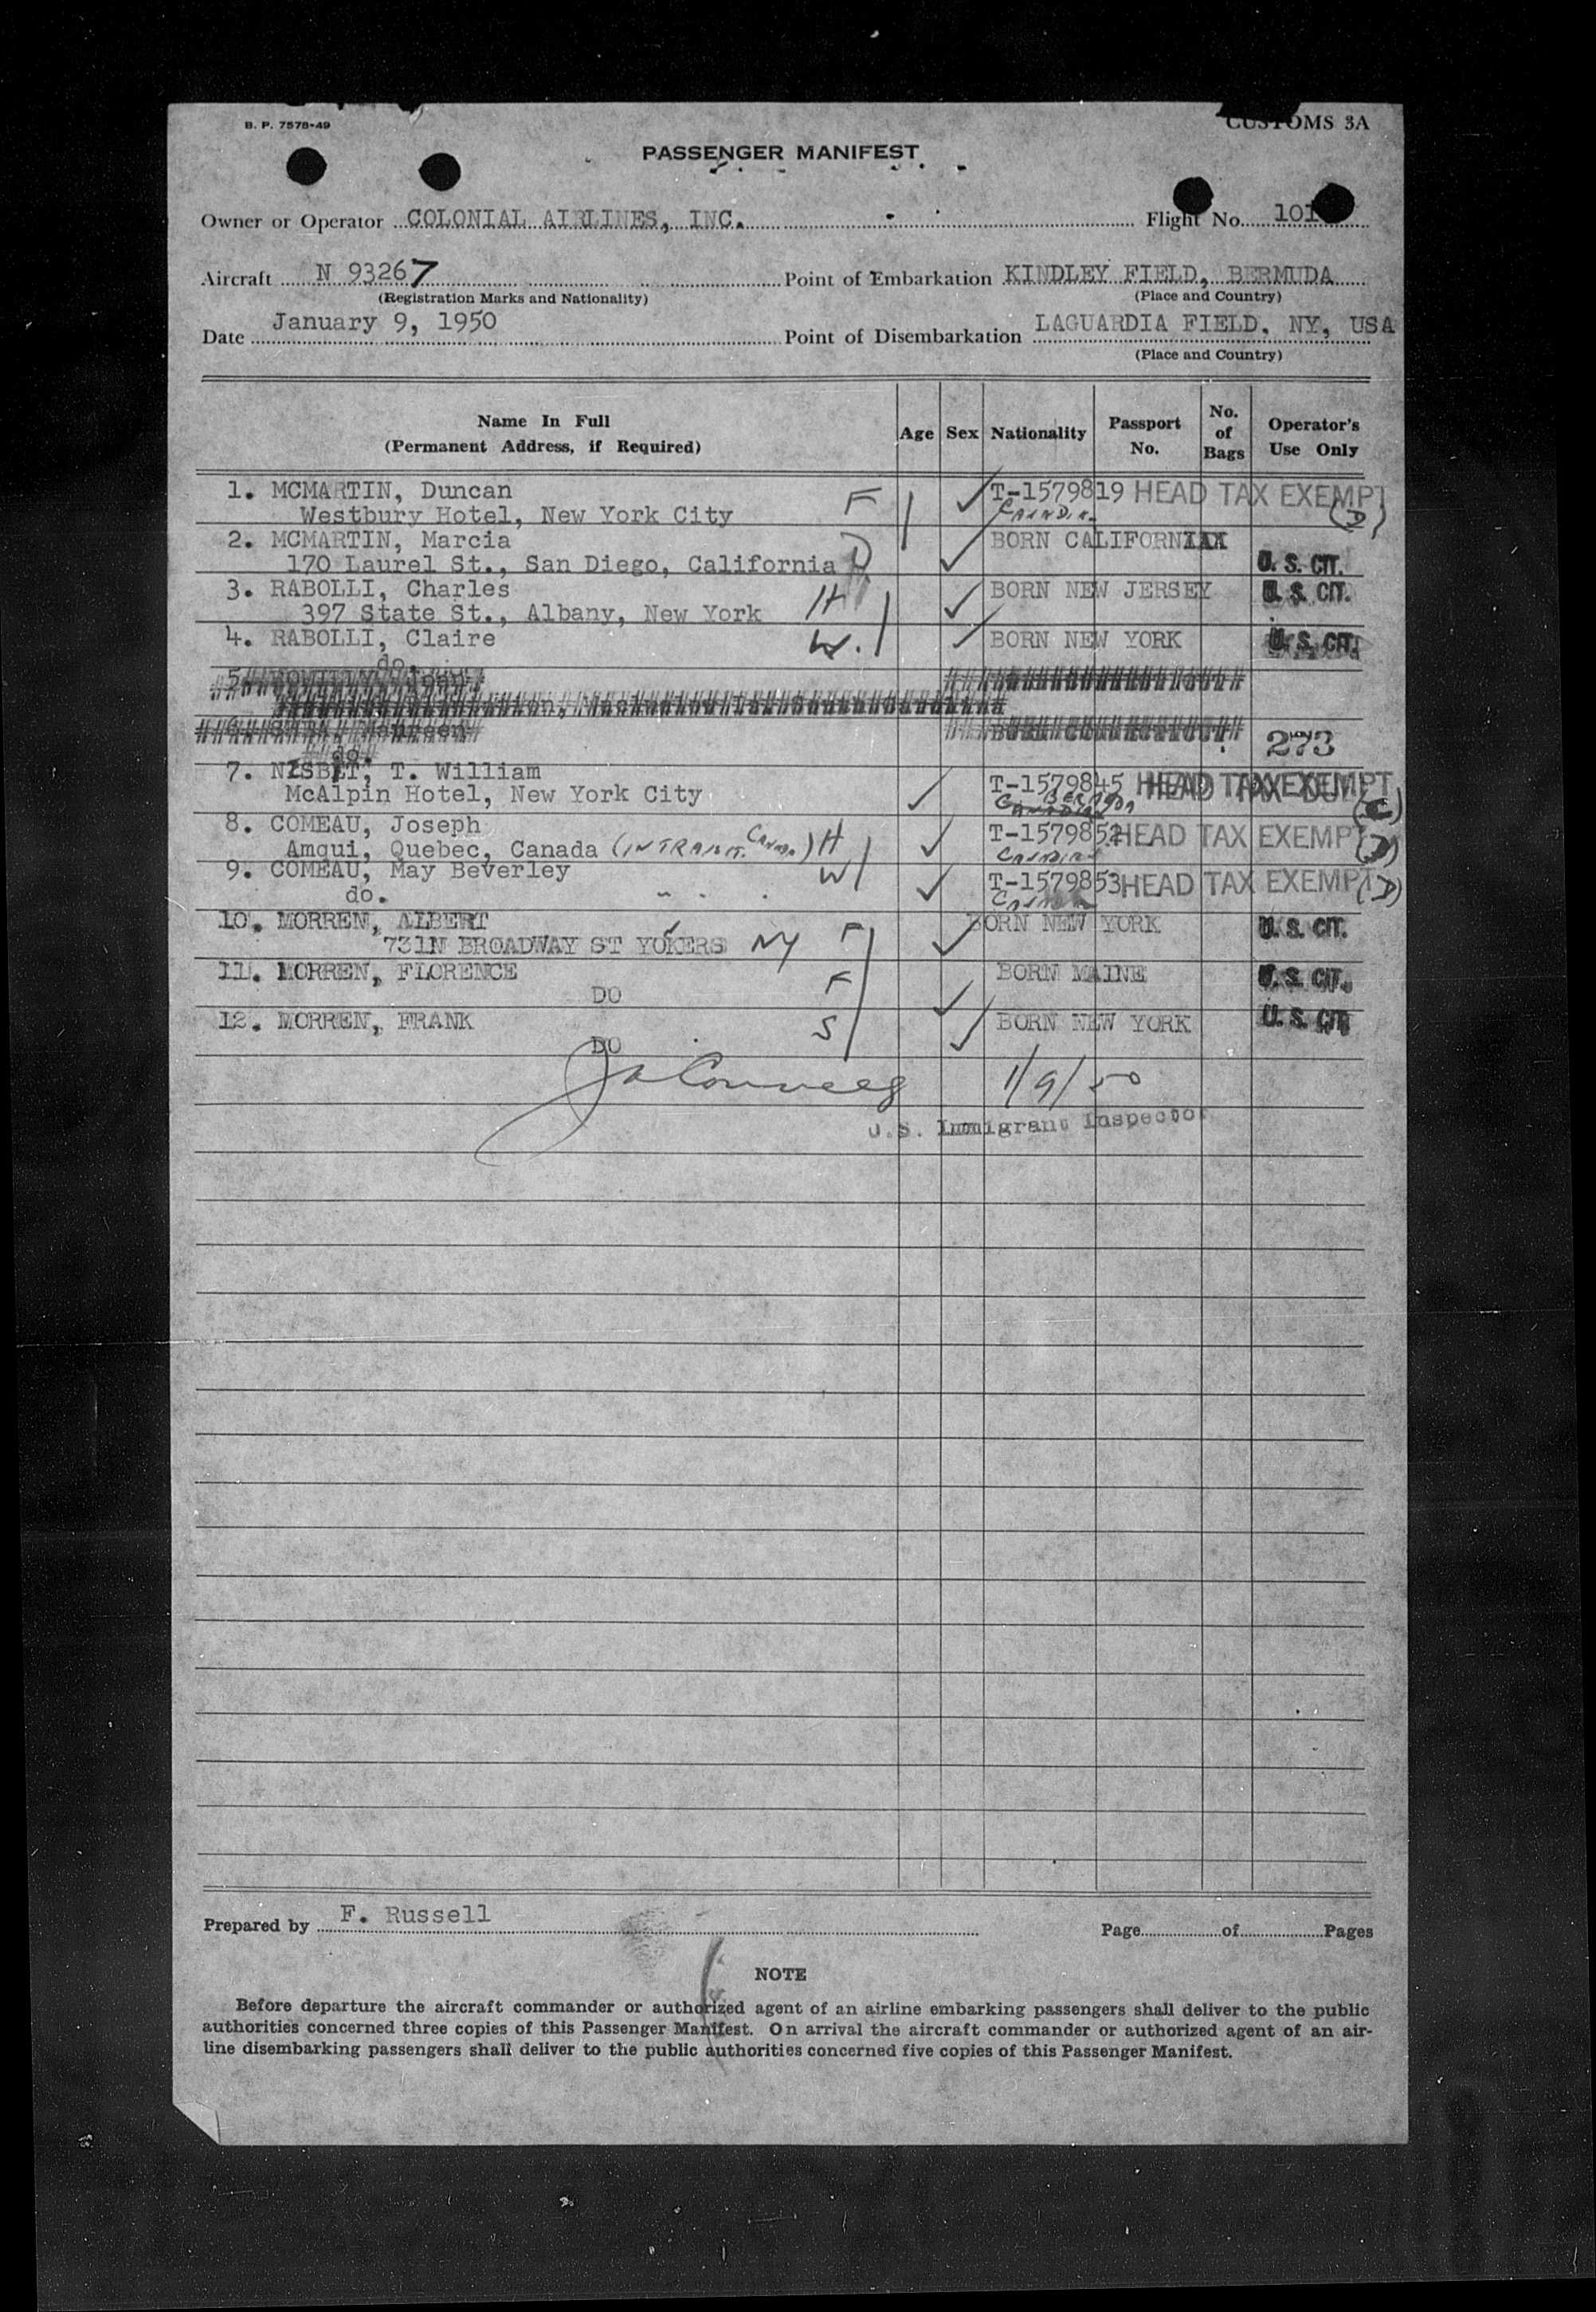 B. P. 7578-49
CUSTOMS 3A
PASSENGER MANIFEST
Owner or Operator COLONIAL AIRLINES, INC. Flight No. 101
Aircraft N 93267 Point of Embarkation KINDLEY FIELD, BERMUDA
(Registration Marks and Nationality) (Place and Country)
Date January 9, 1950 Point of Disembarkation LAGUARDIA FIELD, NY, USA
(Place and Country)
Name In Full
(Permanent Address, if Required) Age Sex Nationality Passport No. No. of Bags Operator's Use Only
1. MCMARTIN, Duncan F T-1579819 HEAD TAX EXEMPT
Westbury Hotel, New York City (D)
2. MCMARTIN, Marcia D BORN CALIFORNIA
170 Laurel St., San Diego, California U. S. CIT.
3. RABOLLI, Charles H BORN NEW JERSEY U. S. CIT.
397 State St., Albany, New York
4. RABOLLI, Claire W. BORN NEW YORK U. S. CIT.
do.
5
Maureen
273
do.
7. NISBET, T. William T-1579845 HEAD TAX EXEMPT
McAlpin Hotel, New York City (C)
8. COMEAU, Joseph H T-1579852 HEAD TAX EXEMPT (D)
Amqui, Quebec, Canada (INTRANSIT.
9. COMEAU, May Beverley W T-1579853 HEAD TAX EXEMPT (D)
do.
10. MORREN, ALBERT F BORN NEW YORK U. S. CIT.
731N BROADWAY ST YOKERS NY
11. MORREN, FLORENCE BORN MAINE U. S. CIT.
DO
12. MORREN, FRANK S BORN NEW YORK U. S. CIT
DO
1/9/50
U.S. Immigrant Inspector
Prepared by F. Russell Page of Pages
NOTE
Before departure the aircraft commander or authorized agent of an airline embarking passengers shall deliver to the public
authorities concerned three copies of this Passenger Manifest. On arrival the aircraft commander or authorized agent of an air-
line disembarking passengers shall deliver to the public authorities concerned five copies of this Passenger Manifest.